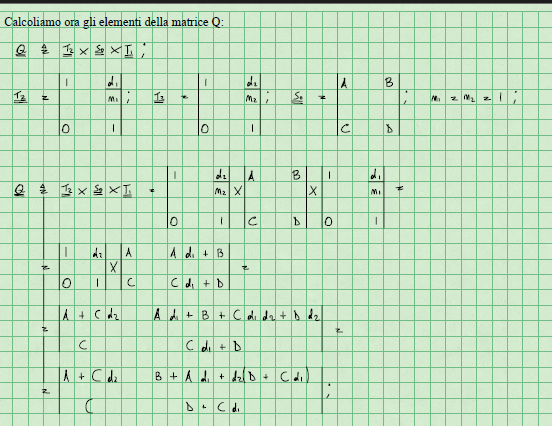 Calcoliamo ora gli elementi della matrice Q:
Q ≜ T₂ × S₀ × T₁ ;
T₂ = | 1 d₁/m₁ ; 0 1 | ; T₂ = | 1 d₂/m₂ ; 0 1 | ; S₀ = | A B ; C D | ; m₁ = m₂ = 1 ;
Q ≜ T₂ × S₀ × T₁ = | 1 d₂/m₂ ; 0 1 | × | A B ; C D | × | 1 d₁/m₁ ; 0 1 | =
= | 1 d₂ ; 0 1 | × | A A d₁ + B ; C C d₁ + D | =
= | A + C d₂ A d₁ + B + C d₁ d₂ + D d₂ ; C C d₁ + D | =
= | A + C d₂ B + A d₁ + d₂(D + C d₁) ; C D + C d₁ | ;